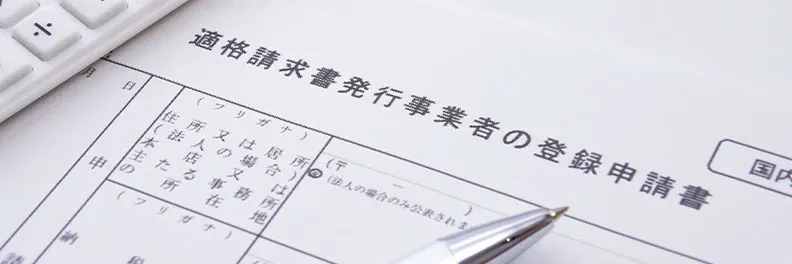 ÷
適格請求書発行事業者の登録申請書
国内
月 日
(フリガナ)
住所又は居所
(法人の場合)
本店又は
主たる事務所
の所在地
(〒 − )
(法人の場合のみ公表されま
申
(フリガナ)
納税
請